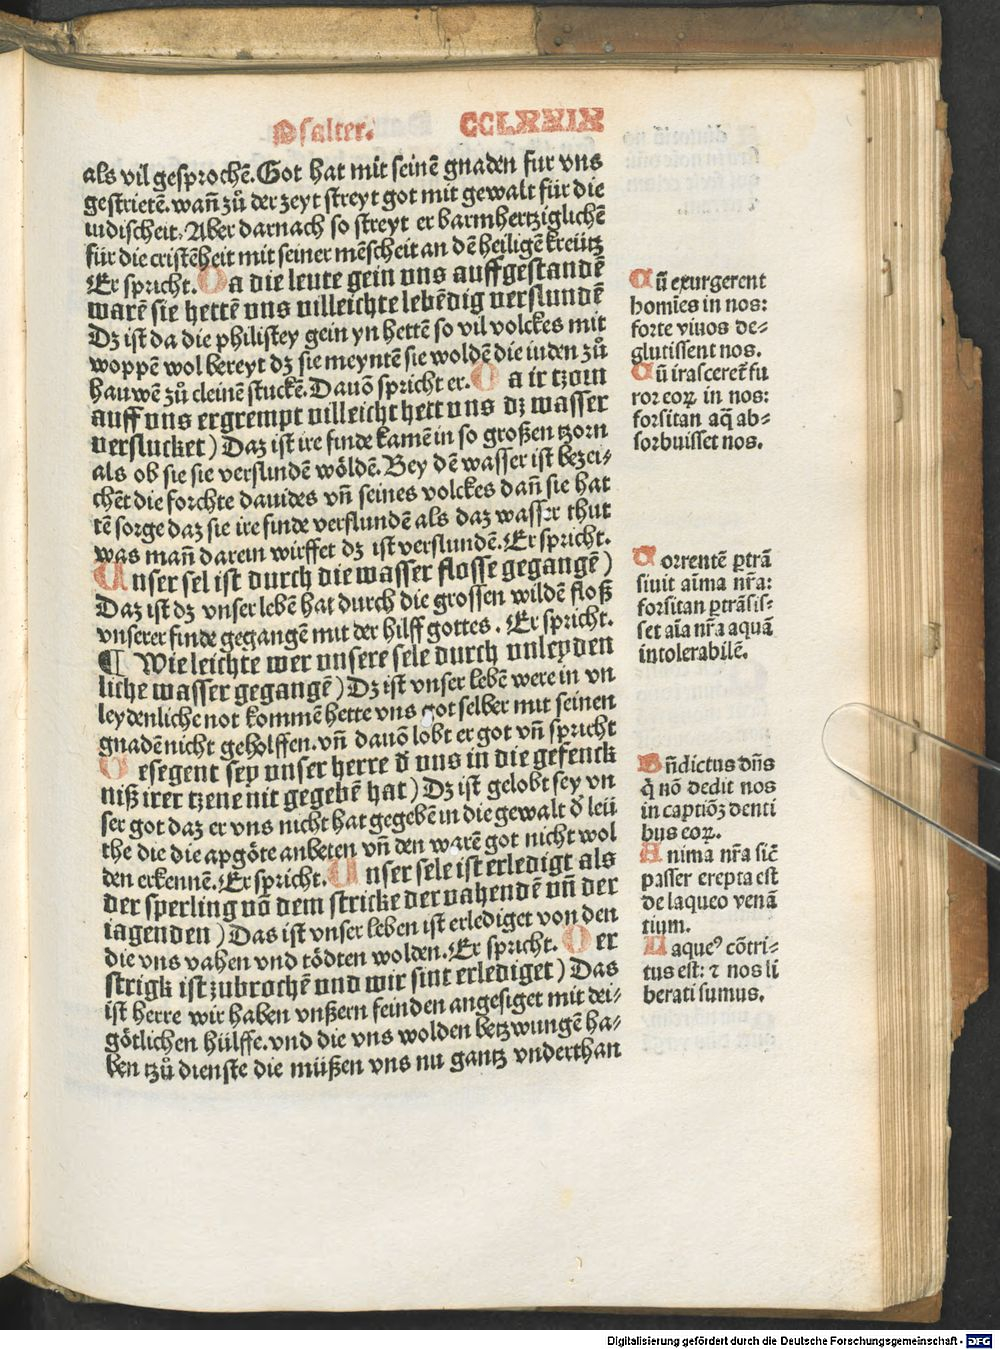 Psalter. CCLXXXIX
als vil gesprochẽ. Got hat mit seinẽ gnaden fur vns
gestrietẽ. wañ zů der zeyt streyt got mit gewalt für die
iudischeit. Aber darnach so streyt er barmhertziglichẽ
für die cristẽheit mit seiner mẽscheit an dẽ heiligẽ kreütz
Er spricht. Da die leute gein uns auffgestandẽ
warẽ sie hettẽ uns villeichte lebẽdig verslundẽ
Dz ist da die philistey gein yn hettẽ so vil volckes mit
woppẽ wol bereyt dz sie meyntẽ sie woldẽ die iuden zů
hauwẽ zů cleinẽ stuckẽ. Dauõ spricht er. Da ir tzorn
auff uns ergrempt villeicht hett uns dz wasser
verslucket) Daz ist ire finde kamẽ in so großen tzorn
als ob sie sie verslundẽ wöldẽ. Bey dẽ wasser ist bezei-
chẽt die forchte dauides vñ seines volckes dañ sie hat
tẽ sorge daz sie ire finde verslundẽ als daz wasser thut
was mañ darein wirffet dz ist verslundẽ. Er spricht.
Unser sel ist durch die wasser flosse gegangẽ)
Daz ist dz vnser lebẽ hat durch die grossen wildẽ floß
vnserer finde gegangẽ mit der hilff gottes. Er spricht.
¶ Wie leichte wer unsere sele durch unleyden
liche wasser gegangẽ) Dz ist vnser lebẽ were in vn
leydenliche not kommẽ hette vns got selber mit seinen
gnadẽ nicht geholffen. vñ dauõ lobt er got vñ spricht
Gesegent sey unser herre d̕ uns in die gefenck
niß irer tzene nit gegebẽ hat) Dz ist gelobt sey vn
ser got daz er vns nicht hat gegebẽ in die gewalt d̕ leü
the die die apgöte anbeten vñ den warẽ got nicht wol
den erkennẽ. Er spricht. Unser sele ist erledigt als
der sperling võ dem stricke der vahendẽ uñ der
iagenden) Das ist vnser leben ist erlediget von den
die vns vahen vnd tödten wolden. Er spricht. Der
strigk ist zubrochẽ und wir sint erlediget) Das
ist herre wir haben vnßern feinden angesiget mit dei-
götlichen hülffe. vnd die vns wolden betzwungẽ ha-
ben tzů dienste die müßen vns nu gantz vnderthan
Cũ exurgerent
homĩes in nos:
forte viuos de-
glutissent nos.
Cũ irasceret̃ fu
ror eoꝝ in nos:
forsitan aq̃ ab-
sorbuisset nos.
Torrentẽ ꝑtrã
siuit aĩma nr̃a:
forsitan ꝑtrãsis-
set aĩa nr̃a aquã
intolerabilẽ.
Bñdictus dñs
q̃ nõ dedit nos
in captiõꝫ denti
bus eoꝝ.
Anima nr̃a sic̃
passer erepta est
de laqueo venã
tium.
Laqueꝰ cõtri-
tus est: ⁊ nos li
berati sumus.
Digitalisierung gefördert durch die Deutsche Forschungsgemeinschaft - DFG